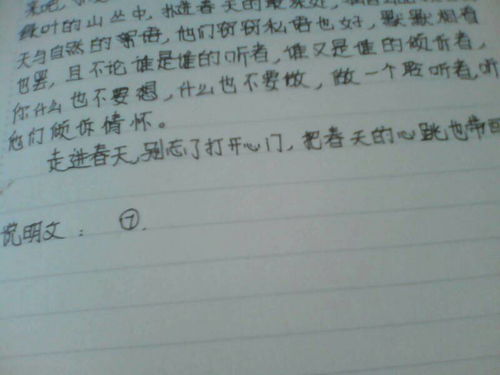 来吧，
绿叶的山丛中，扑进春天的最深处，
天与自然的絮语，他们窃窃私语也好，默默相看
也罢，且不论谁是谁的听者，谁又是谁的倾诉者，
你什么也不要想，什么也不要做，做一个聆听者，听
他们倾诉情怀。
走进春天，别忘了打开心门，把春天的心跳也带回
说明文：⑦.